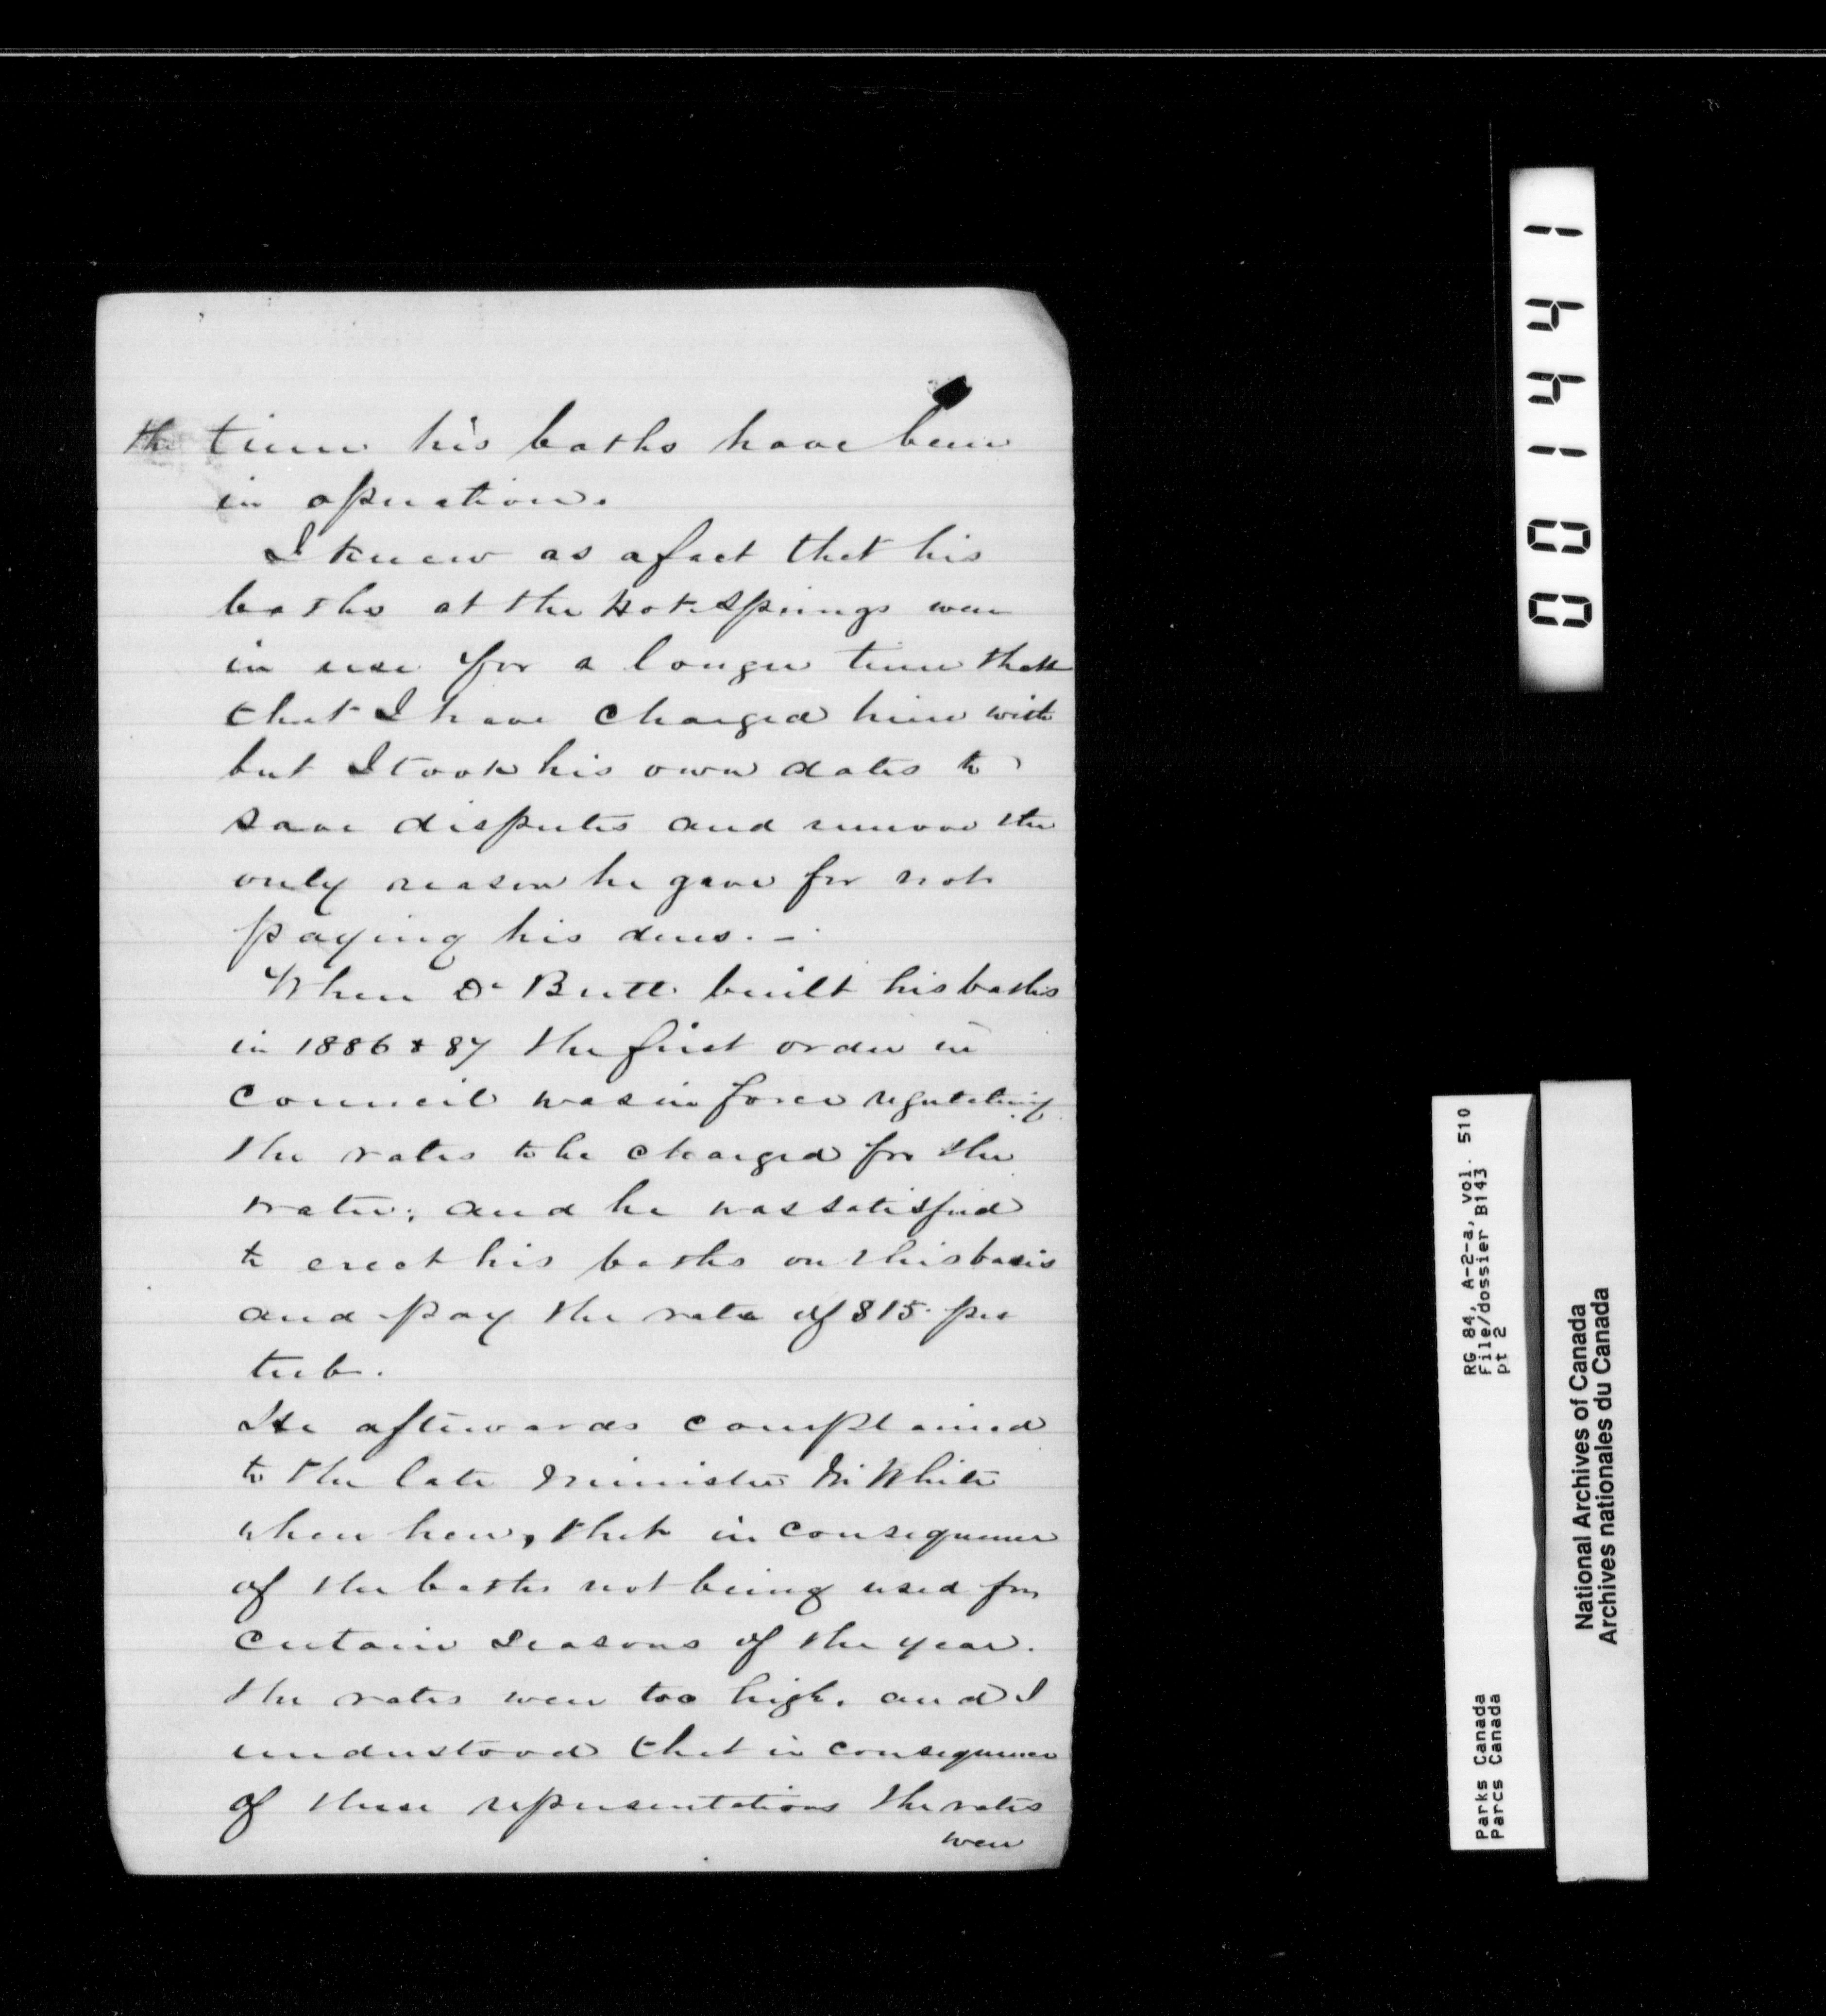 the time his baths have been
in operation.
I knew as a fact that his
baths at the Hot Springs were
in use for a longer time than
that I have charged him with
but I took his own dates to
save disputes and remove the
only reason he gave for not
paying his dues. -
When Dr Brett built his baths
in 1886 & 87 the first order in
council was in force regulating
the rates to be charged for the
water; and he was satisfied
to erect his baths on this basis
and pay the rate of $15. per
tub.
He afterwards complained
to the late minister Mr White
when here, that in consequence
of the baths not being used for
certain seasons of the year.
the rates were too high. and I
understood that in consequence
of these representations the rates
were
001441
RG 84, A-2-a, vol. 510
File/dossier B143
pt 2
Parks Canada
Parcs Canada
National Archives of Canada
Archives nationales du Canada